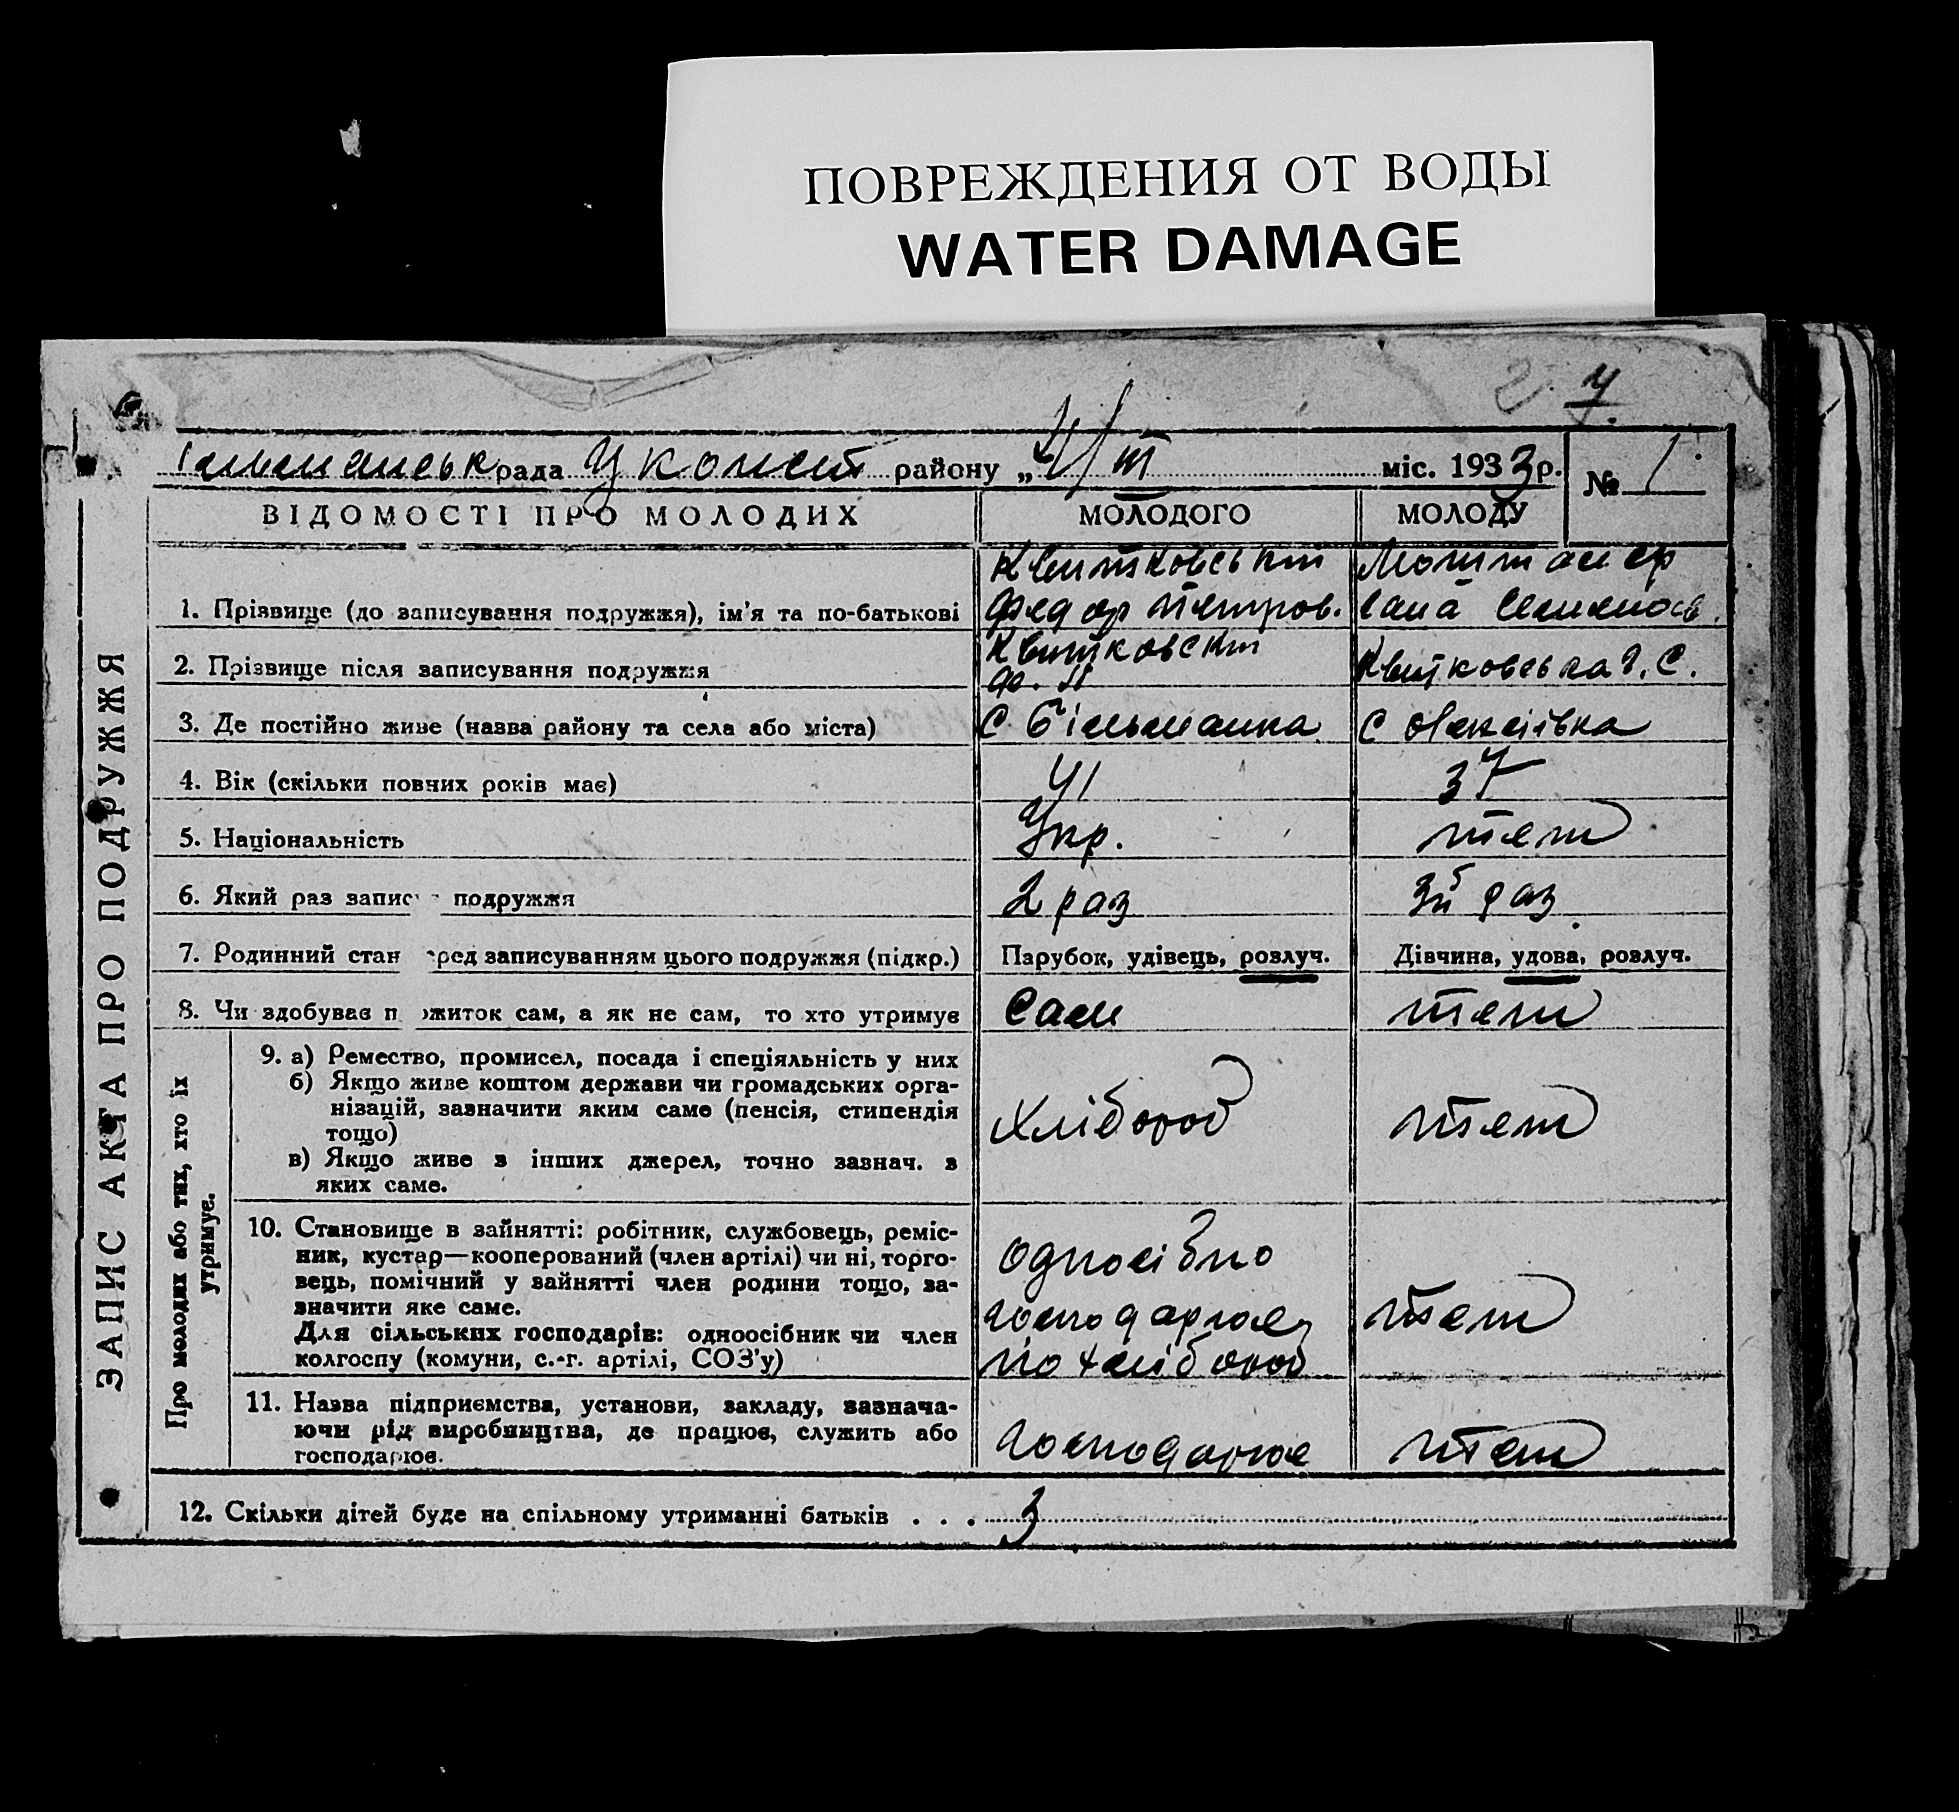 ПОВРЕЖДЕНИЯ ОТ ВОДЫ
WATER DAMAGE
4
рада районУ „4/III міс. 1933р. № 1
ЗАПИС АКТА ПРО ПОДРУЖЖЯ
ВІДОМОСТІ ПРО МОЛОДИХ МОЛОДОГО МОЛОДУ
1. Прізвище (до записування подружжя), ім'я та по-батькові Квитковський Федор Петров.
2. Прізвище після записування подружжя Квитковский Ф. П Квитковська Г. С.
3. Де постійно живе (назва району та села або міста) с Більманка с Олексіівка
4. Вік (скільки повних років має) 41 37
5. Національність Укр. теж
6. Який раз запис подружжя 2 раз 3й раз
7. Родинний стан перед записуванням цього подружжя (підкр.) Парубок, удівець, розлуч. Дівчина, удова, розлуч.
8. Чи здобував п ожиток сам, а як не сам, то хто утримує Сам теж
Про молодих або тих, хто їх утримує.
9. а) Ремество, промисел, посада і спеціяльність у них
б) Якщо живе коштом держави чи громадських орга-
нізацій, зазначити яким саме (пенсія, стипендія Хлібороб теж
тощо)
в) Якщо живе з інших джерел, точно зазнач. з
яких саме.
10. Становище в зайнятті: робітник, службовець, реміс-
ник, кустар—кооперований (член артілі) чи ні, торго- одноосібно
вець, помічний у зайнятті член родини тощо, за-
значити яке саме. господарює теж
Для сільських господарів: одноосібник чи член
колгоспу (комуни, с.-г. артілі, СОЗ'у) по хлібороб
11. Назва підприємства, установи, закладу, зазнача-
ючи рід виробництва, де працює, служить або господарює теж
господарює.
12. Скільки дітей буде на спільному утриманні батьків . . . 3